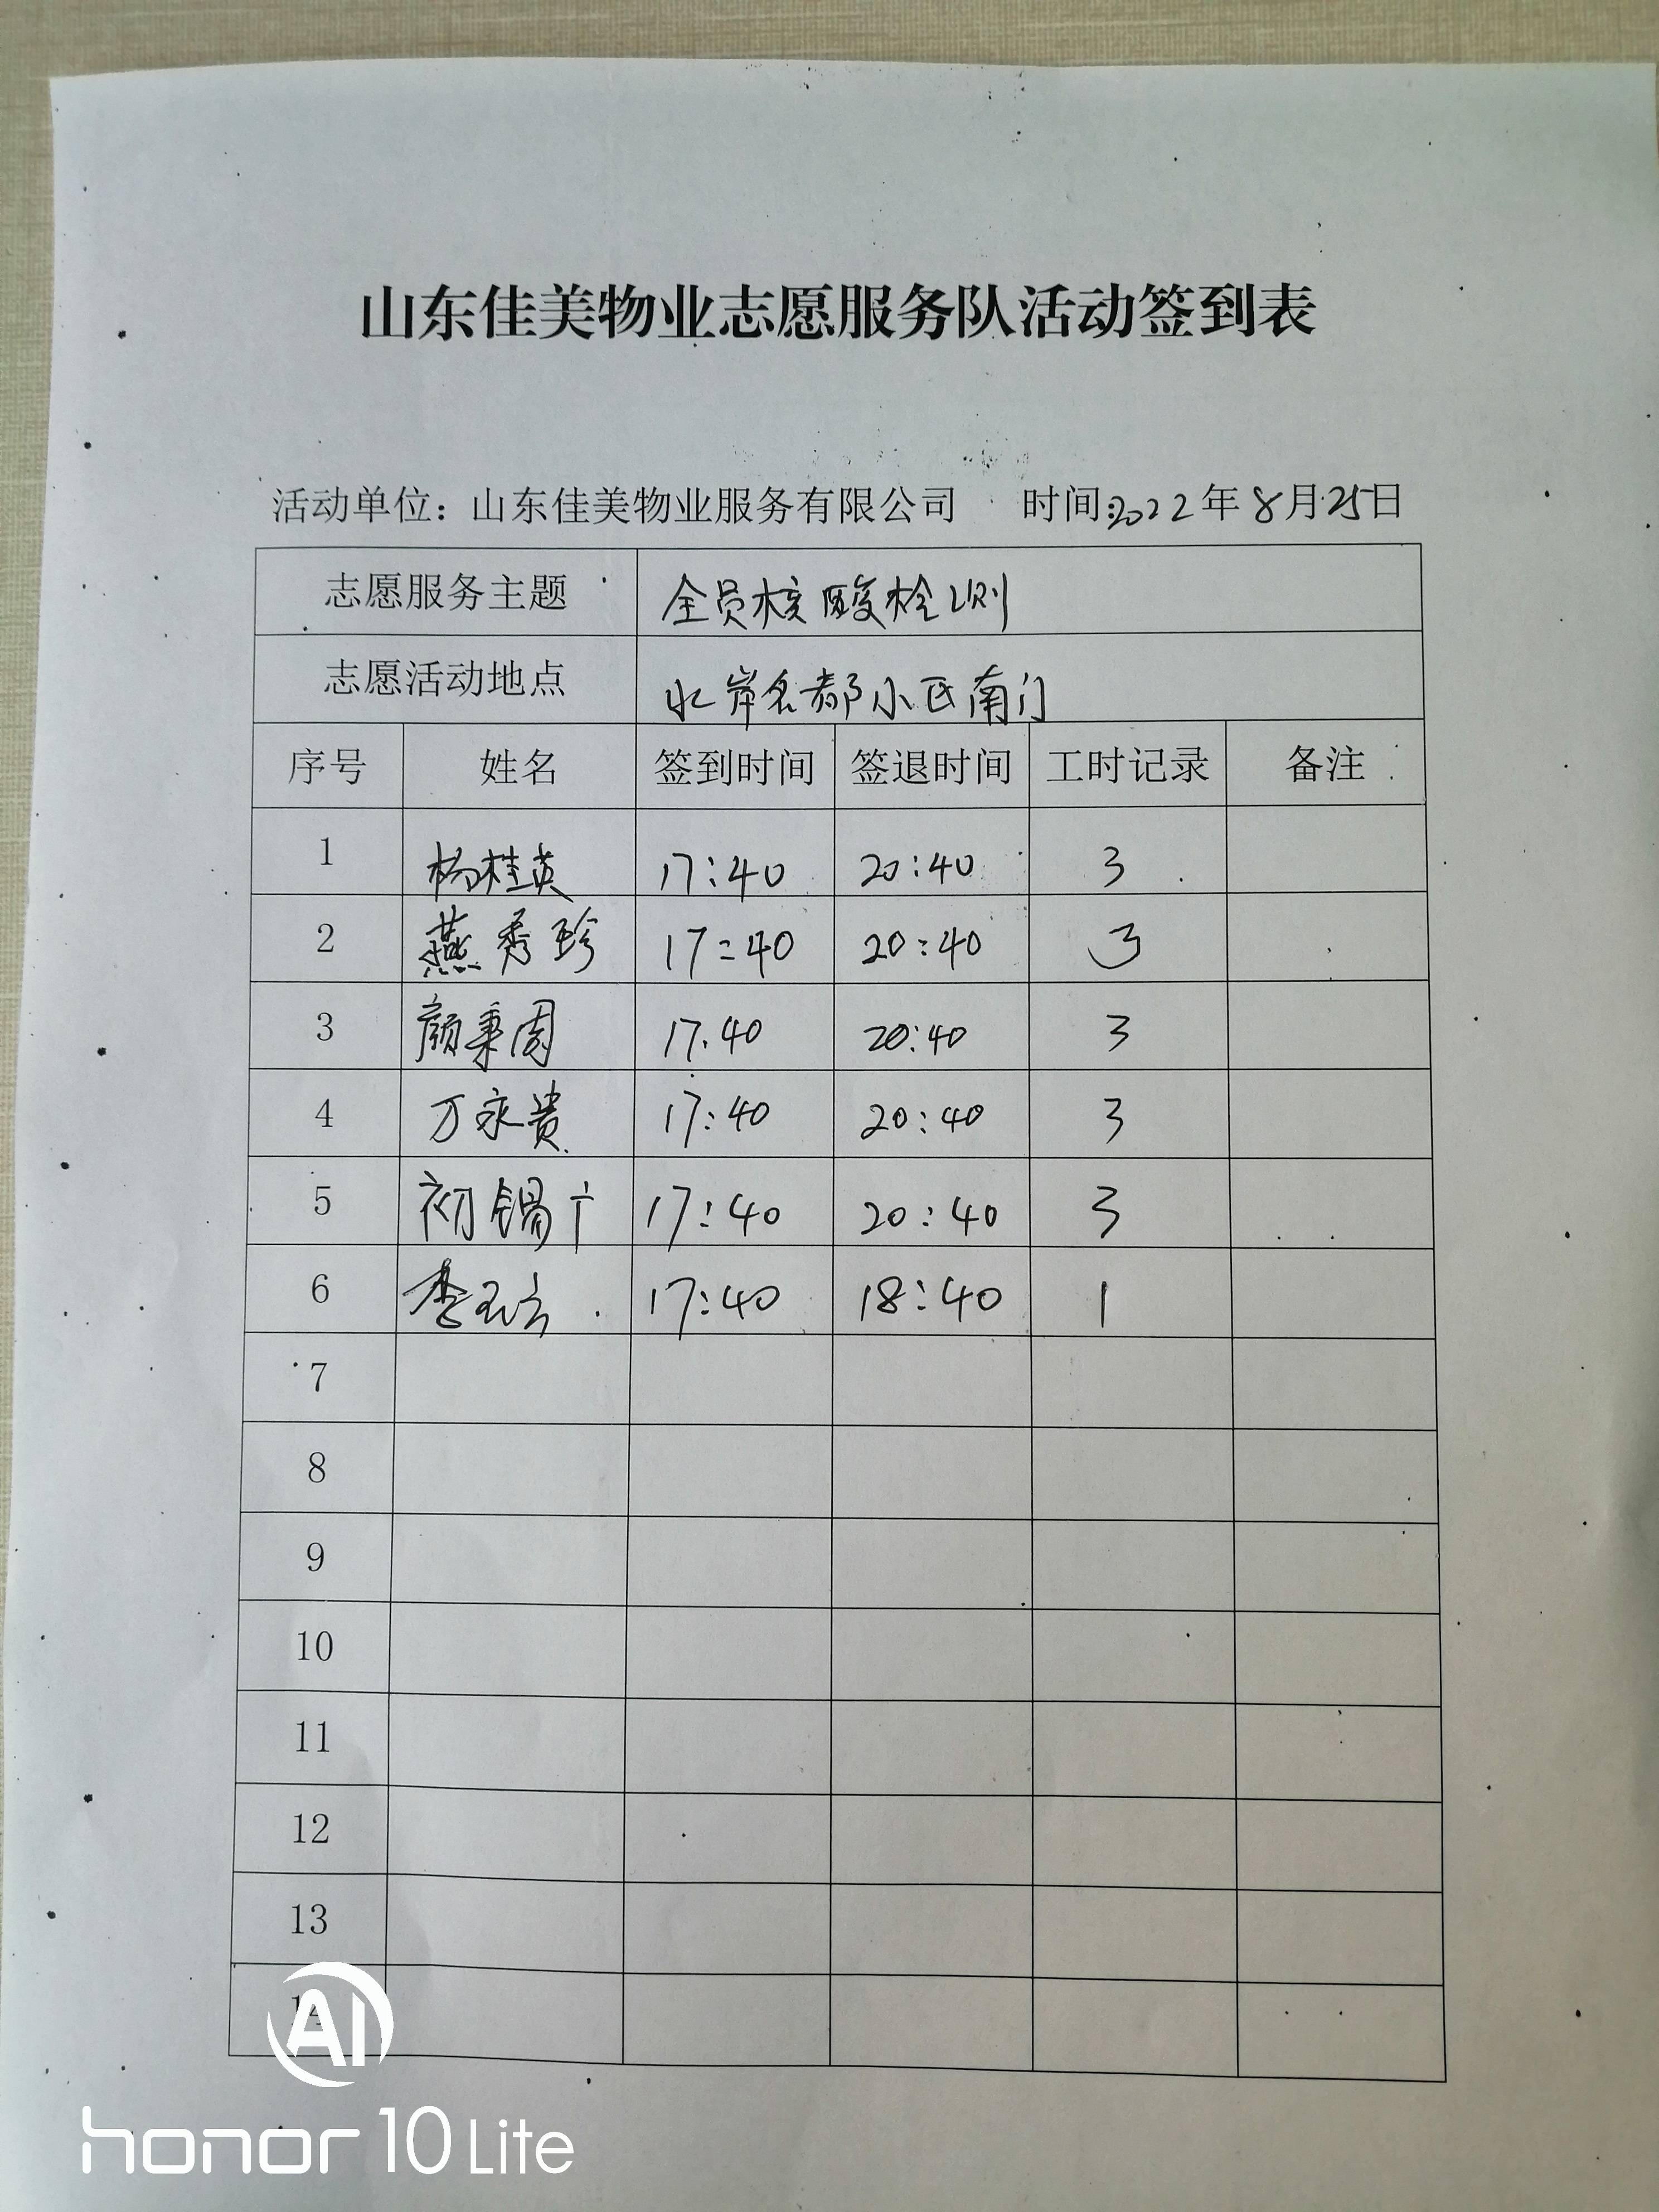 山东佳美物业志愿服务队活动签到表
活动单位：山东佳美物业服务有限公司 时间:2022年8月25日
志愿服务主题 全员核酸检测
志愿活动地点 水岸名都小区南门
序号 姓名 签到时间 签退时间 工时记录 备注
1 杨桂英 17:40 20:40 3
2 燕秀珍 17:40 20:40 3
3 颜秉周 17:40 20:40 3
4 万永贵 17:40 20:40 3
5 初锡 17:40 20:40 3
6 李 17:40 18:40 1
7
8
9
10
11
12
13
14
AI
honor 10 Lite